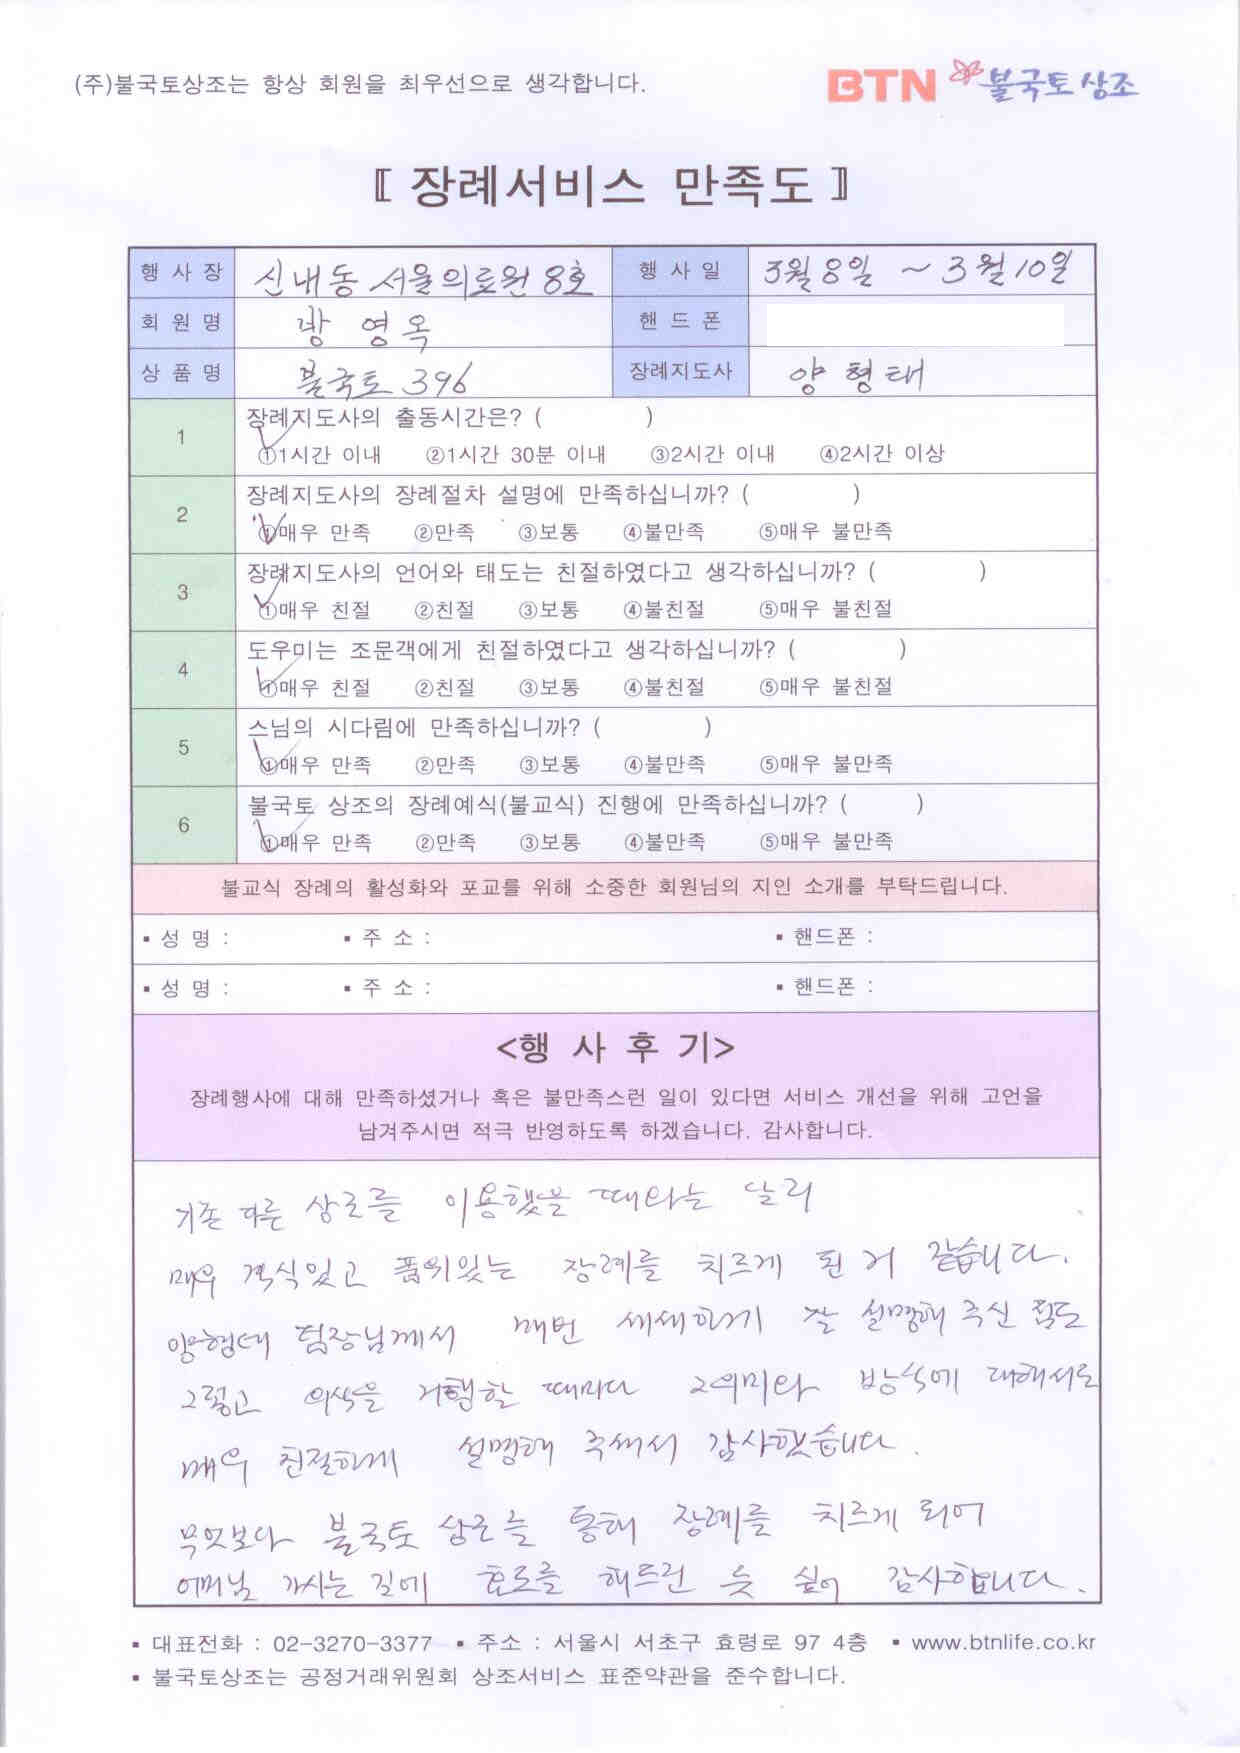 (주)불국토상조는 항상 회원을 최우선으로 생각합니다.
BTN 불국토상조
〚 장례서비스 만족도 〛
행 사 장 신내동 서울의료원 8호 행 사 일 3월 8일 ~ 3월 10일
회 원 명 영옥 핸 드 폰
상 품 명 불국토 396 장례지도사 양형태
1 장례지도사의 출동시간은? ( )
①1시간 이내 ②1시간 30분 이내 ③2시간 이내 ④2시간 이상
2 장례지도사의 장례절차 설명에 만족하십니까? ( )
①매우 만족 ②만족 ③보통 ④불만족 ⑤매우 불만족
3 장례지도사의 언어와 태도는 친절하였다고 생각하십니까? ( )
①매우 친절 ②친절 ③보통 ④불친절 ⑤매우 불친절
4 도우미는 조문객에게 친절하였다고 생각하십니까? ( )
①매우 친절 ②친절 ③보통 ④불친절 ⑤매우 불친절
5 스님의 시다림에 만족하십니까? ( )
①매우 만족 ②만족 ③보통 ④불만족 ⑤매우 불만족
6 불국토 상조의 장례예식(불교식) 진행에 만족하십니까? ( )
①매우 만족 ②만족 ③보통 ④불만족 ⑤매우 불만족
불교식 장례의 활성화와 포교를 위해 소중한 회원님의 지인 소개를 부탁드립니다.
▪ 성 명 : ▪ 주 소 : ▪ 핸드폰 :
▪ 성 명 : ▪ 주 소 : ▪ 핸드폰 :
<행 사 후 기>
장례행사에 대해 만족하셨거나 혹은 불만족스런 일이 있다면 서비스 개선을 위해 고언을
남겨주시면 적극 반영하도록 하겠습니다. 감사합니다.
기존 다른 상조를 이용했을 때와는 달리
매우 격식있고 품위있는 장례를 치르게 된 거 같습니다.
양형태 팀장님께서 매번 세세하게 잘 설명해 주신 점도
그렇고 의식을 거행할 때마다 그의미와 방식에 대해서도
매우 친절하게 설명해 주셔서 감사했습니다.
무엇보다 불국토 상조를 통해 장례를 치르게 되어
어머님 가시는 길에 효도를 해드린 듯 싶어 감사합니다.
▪ 대표전화 : 02-3270-3377 ▪ 주소 : 서울시 서초구 효령로 97 4층 ▪ www.btnlife.co.kr
▪ 불국토상조는 공정거래위원회 상조서비스 표준약관을 준수합니다.